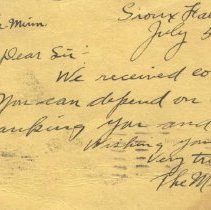 Sioux Fa
. Minn.
July 5
Dear Sir
We received co
You can depend on
anking you and
Wishing you
Very tru
The M